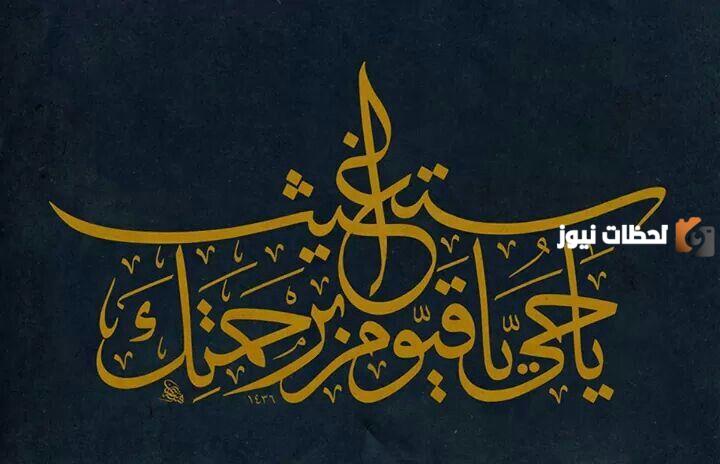 يا حَيُّ يا قيّوم برحمتِكَ
أستغيث
١٤٣٦
لحظات نيوز